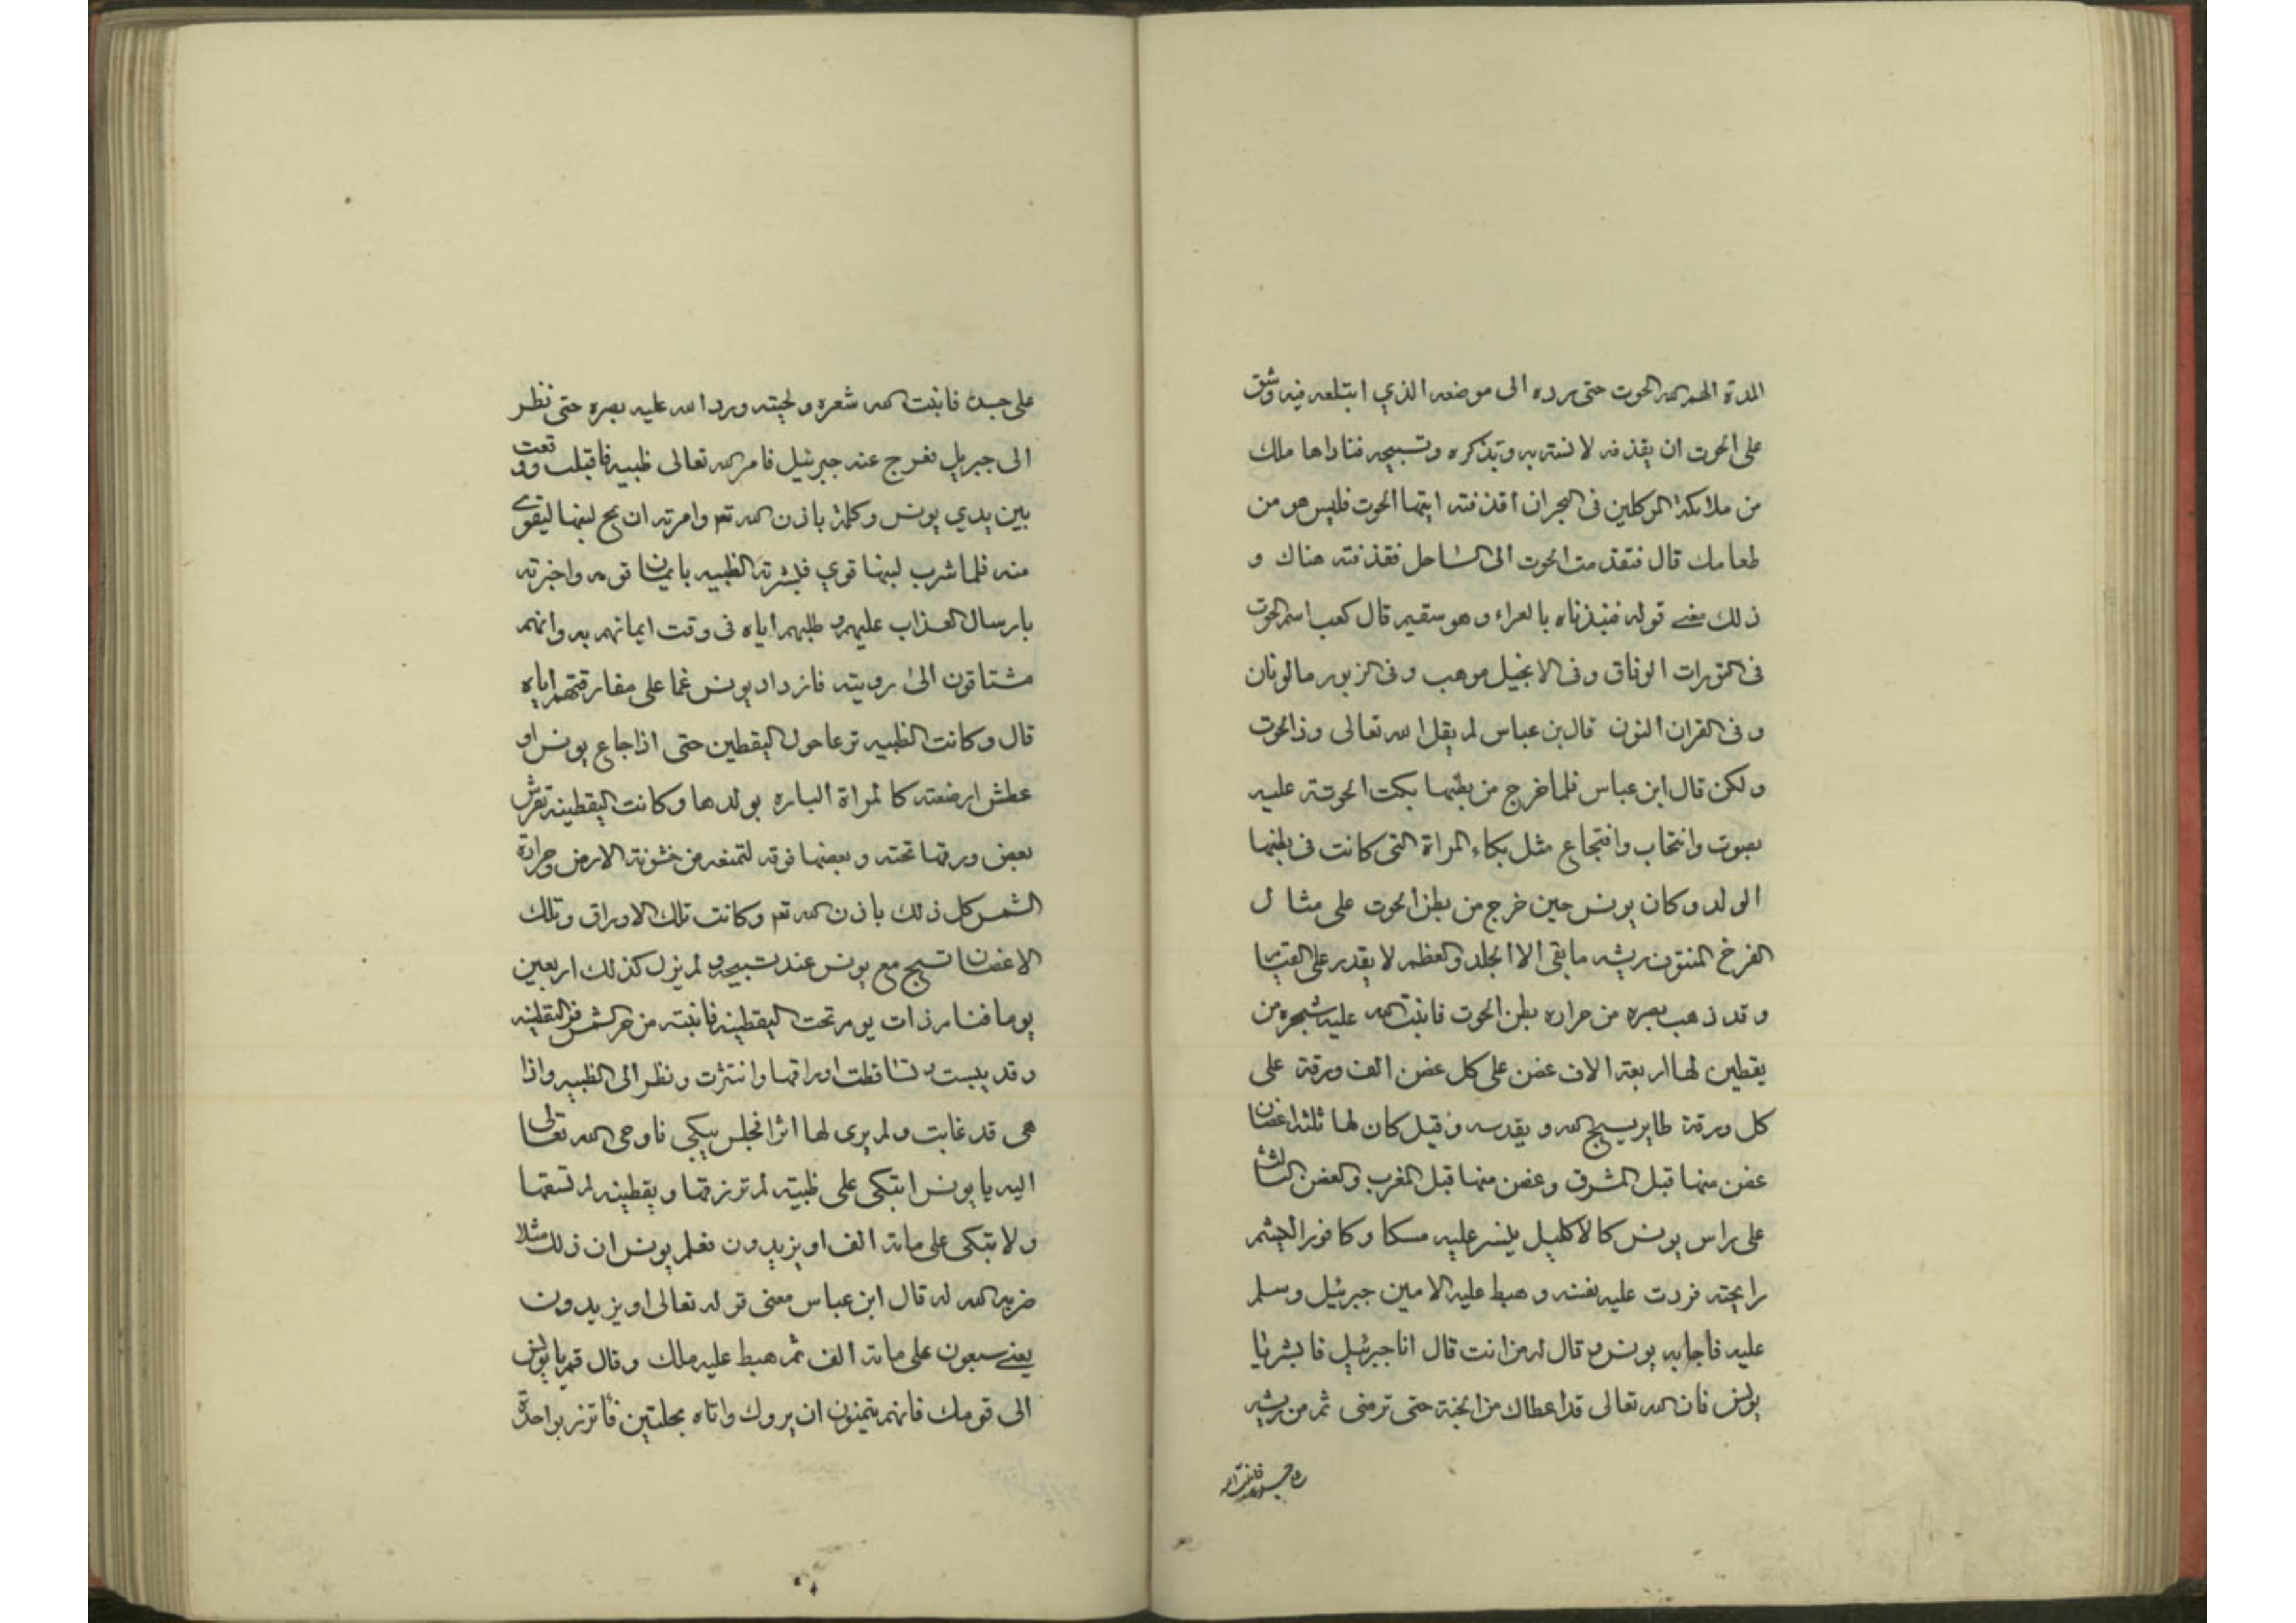 المدة الهم الله الحوت حتى يرده الى موضعه الذي ابتلعه فيه وشق
على الحوت ان يقذفه لانسته به وبذكره وتسبيحه فناداها ملك
من ملائكة الموكلين فى البحر ان اقذفته ايتها الحوت فليس هو من
طعامك قال فتقدمت الحوت الى الساحل فقذفته هناك و
ذلك معنى قوله فنبذناه بالعراء وهو سقيم قال كعب اسم الحوت
فى التورات الوناق وفى الانجيل موهب وفى الزبور مالونان
وفى القران النون قال بن عباس لم يقل الله تعالى وذالحوت
ولكن قال ابن عباس فلما خرج من بطنها بكت الحوت عليه
بصوت وانتحاب وافتجاع مثل بكاء المراة التى كانت فى بطنها
الولد وكان يونس حين خرج من بطن الحوت على مثال
الفرخ المنتوف ريشه ما بقى الا الجلد والعظم لا يقدر على القيام
وقد ذهب بصره من حراره بطن الحوت فانبت الله عليه شجره من
يقطين لها اربعة الاف غصن على كل غصن الف ورقة على
كل ورقة طاير يسبح الله و يقدسه وقيل كان لها ثلثة اغصان
غصن منها قبل المشرق وغصن منها قبل المغرب والغصن الثالث
على راس يونس كالاكليل ينشر عليه مسكا وكافورا ليشم
رايحته فردت عليه نفسه وهبط عليه الامين جبرئيل وسلم
عليه فاجابه يونس وقال له من انت قال انا جبرئيل فابشر يا
يونس فان الله تعالى قد اعطاك من الجنة حتى ترضى ثم مر بريشه
على جسده فانبت الله
على جسده فانبت الله شعره ولحيته ورد الله عليه بصره حتى نظر
الى جبريل فعرج عنه جبرئيل فامر الله تعالى ظبيه فاقبلت ووقعت
بين يدي يونس وكلمته باذن الله تعم وامرته ان يمج لبنها ليقوى
منه فلما شرب لبنها قوي فبشرته الظبيه بايمان قومه واخبرته
بارسال العذاب عليهم وطلبهم اياه فى وقت ايمانهم به وانهم
مشتاقون الى رويته فازداد يونس غما على مفارقتهم اياه
قال وكانت الظبيه ترعا حول اليقطين حتى اذا جاع يونس او
عطش ارضعته كالمراة الباره بولدها وكانت اليقطينه تفرش
بعض ورقها تحته وبعضها فوقه لتمنعه من خشونة الارض وحرارة
الشمس كل ذلك باذن الله تعم وكانت تلك الاوراق وتلك
الاغصان تسبح مع يونس عند تسبيحه ولم يزل كذلك اربعين
يوما فنام ذات يوم تحت اليقطينه فانبته من حر الشمس اليقطينه
وقد يبست وتساقطت اوراقها وانتثرت ونظر الى الظبيه واذا
هى قد غابت ولم يرى لها اثرا فجلس يبكي فاوحى الله تعالى
اليه يا يونس اتبكى على ظبيته لم ترزقها ويقطينه لم تسقها
ولا تبكى على ماية الف او يزيدون فعلم يونس ان ذلك مثلا
ضربه الله له قال ابن عباس معنى قوله تعالى او يزيدون
يعنے سبعون على ماية الف ثم هبط عليه ملك وقال قم يا يونس
الى قومك فانهم يتمنون ان يروك واتاه بحلتين فاتزر بواحدة